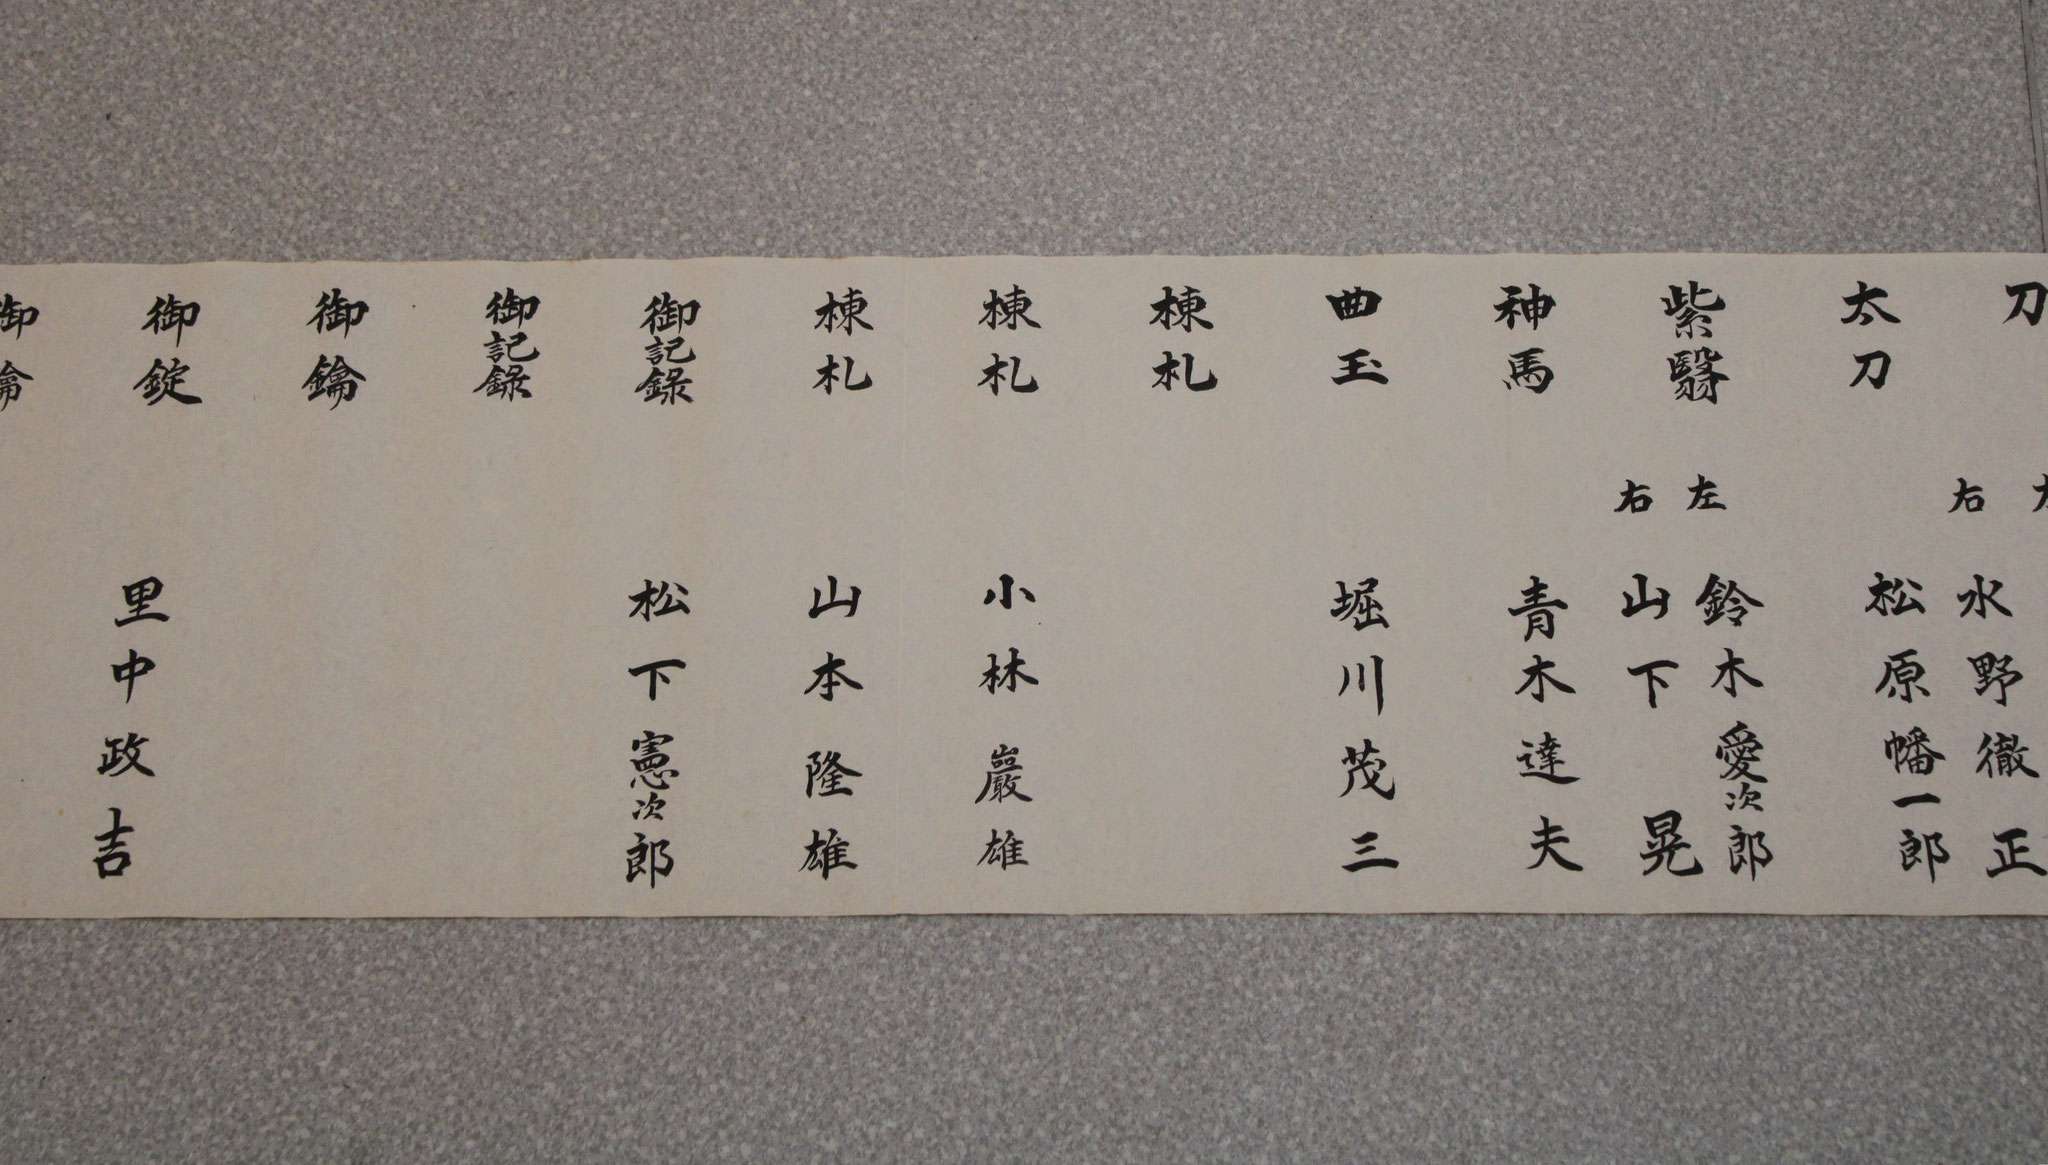 刀
右 水野徹正
太刀 松原幡一郎
紫翳
左 鈴木愛次郎
右 山下晃
神馬 青木達夫
曲玉 堀川茂三
棟札
棟札 小林巖雄
棟札 山本隆雄
御記録 松下憲次郎
御記録
御鑰
御錠 里中政吉
御鑰